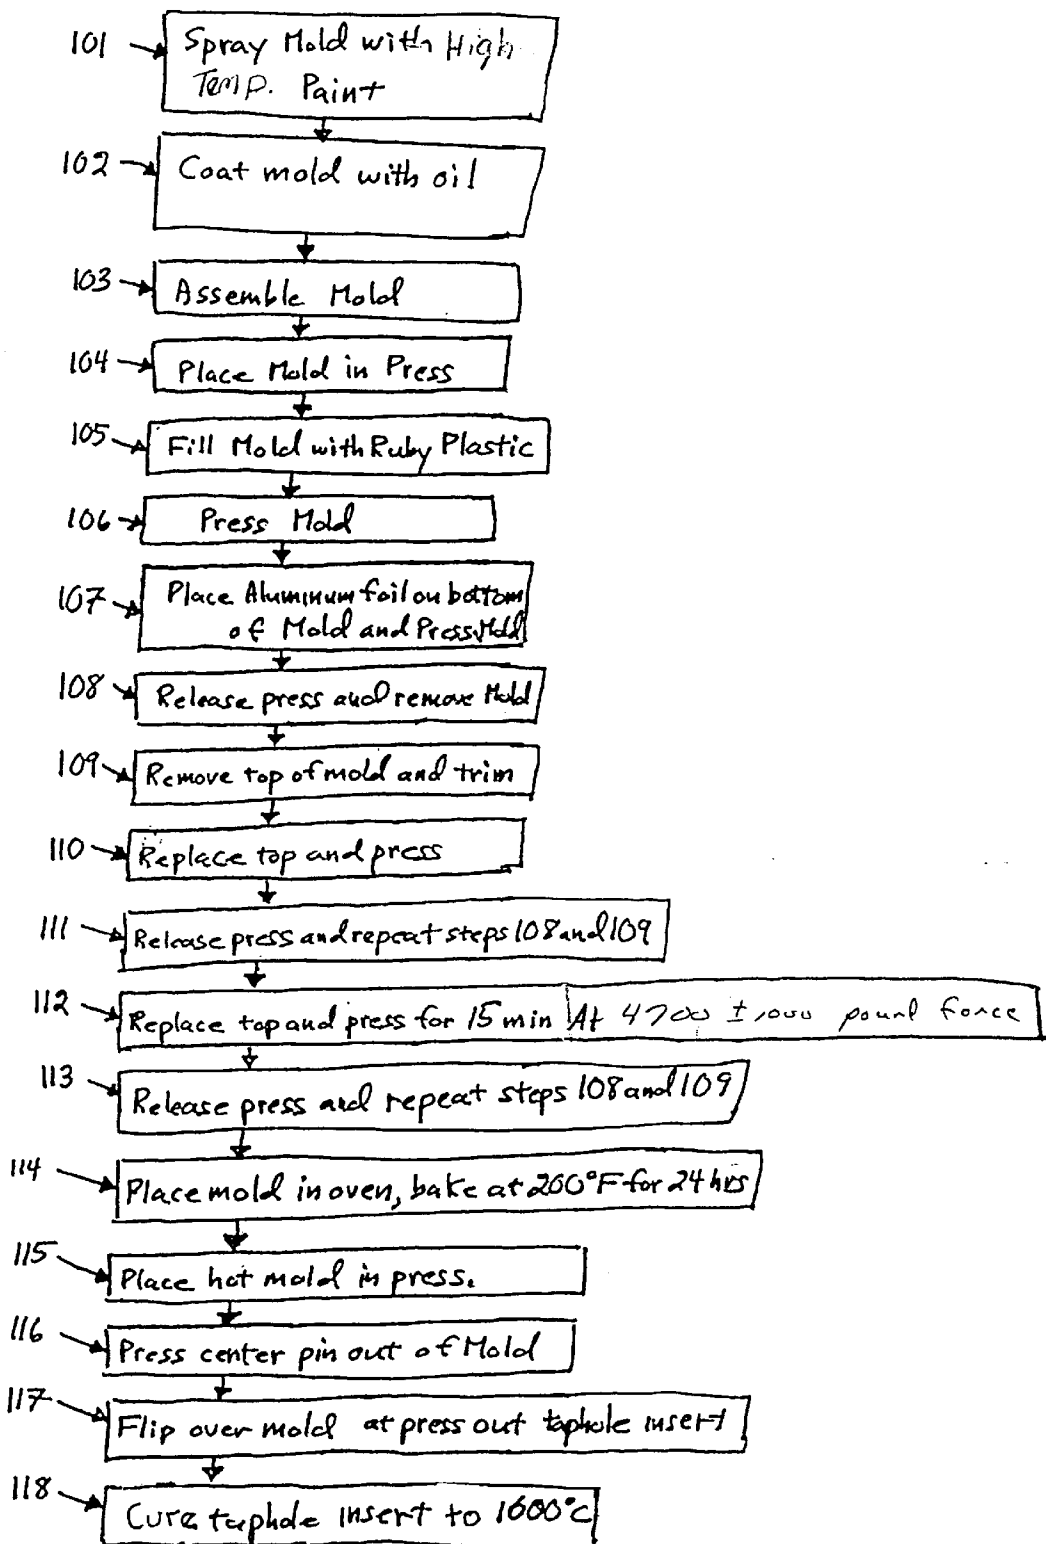 101
Spray Mold with High
Temp. Paint
102
Coat mold with oil
103
Assemble Mold
104
Place Mold in Press
105
Fill Mold with Ruby Plastic
106
Press Mold
107
Place Aluminum foil on bottom
of Mold and Press Mold
108
Release press and remove Mold
109
Remove top of mold and trim
110
Replace top and press
111
Release press and repeat steps 108 and 109
112
Replace top and press for 15 min At 4700 ± 1000 pound force
113
Release press and repeat steps 108 and 109
114
Place mold in oven, bake at 200°F for 24 hrs
115
Place hot mold in press.
116
Press center pin out of Mold
117
Flip over mold at press out taphole insert
118
Cure taphole insert to 1000°C